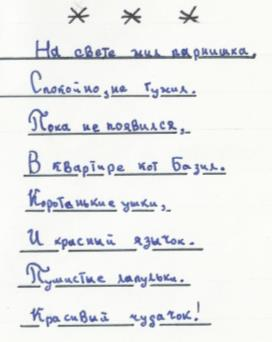 * * *
На свете жил парнишка,
Спокойно, не тужил.
Пока не появился,
В квартире кот Базил.
Коротенькие ушки,
И красный язычок.
Пушистые лапульки.
Красивый чудачок!